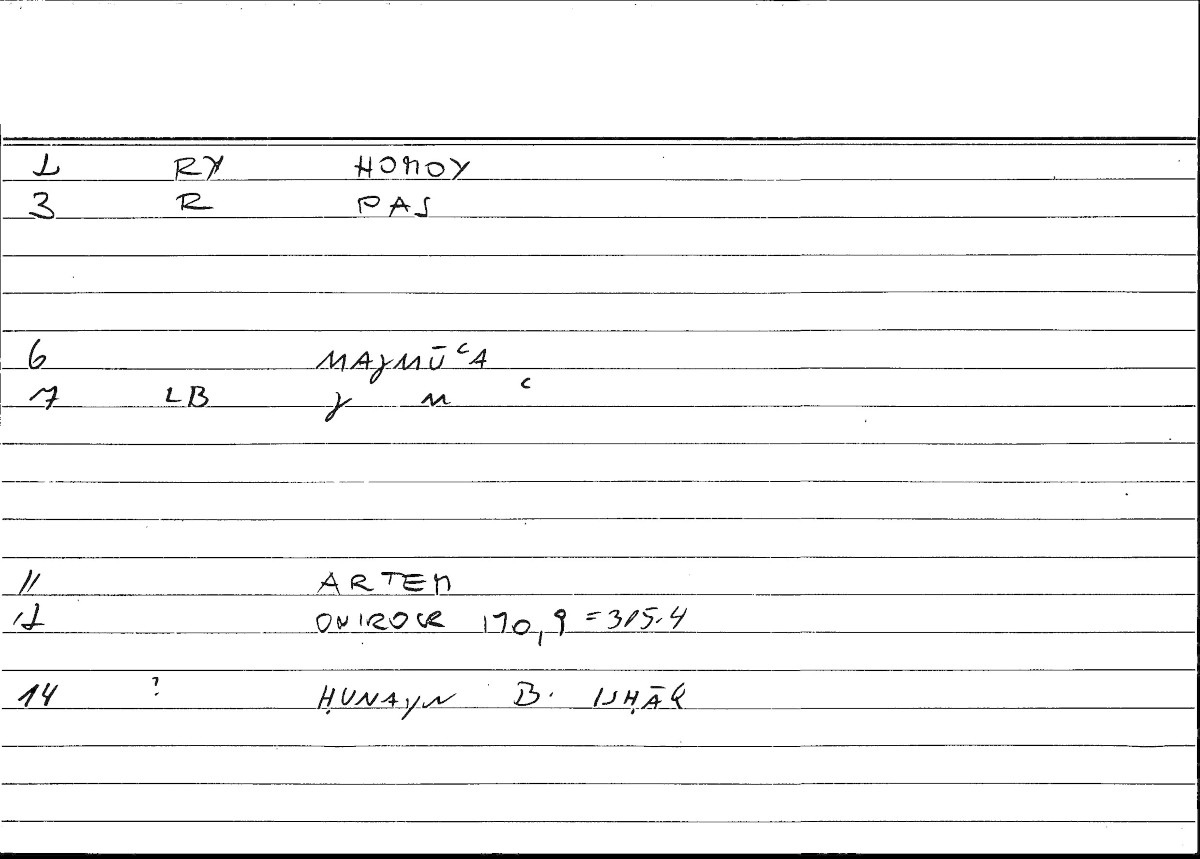 1 RY HOMOY
3 R PAS
6 MAJMŪʿA
7 LB J M ʿ
11 ARTEM
12 ONIROCR 170,9 = 315.4
14 ? ḤUNAYN B. ISḤĀQ